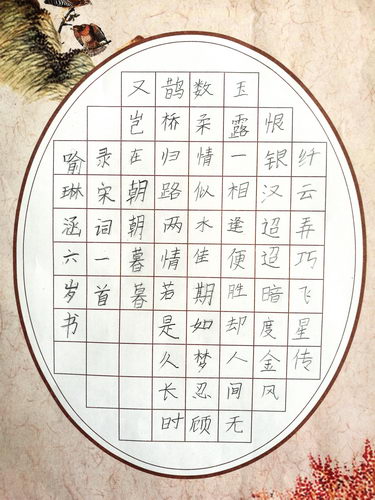 纤云弄巧飞星传
恨银汉迢迢暗度金风
玉露一相逢便胜却人间无
数柔情似水佳期如梦忍顾
鹊桥归路两情若是久长时
又岂在朝朝暮暮
录宋词一首
喻琳涵六岁书